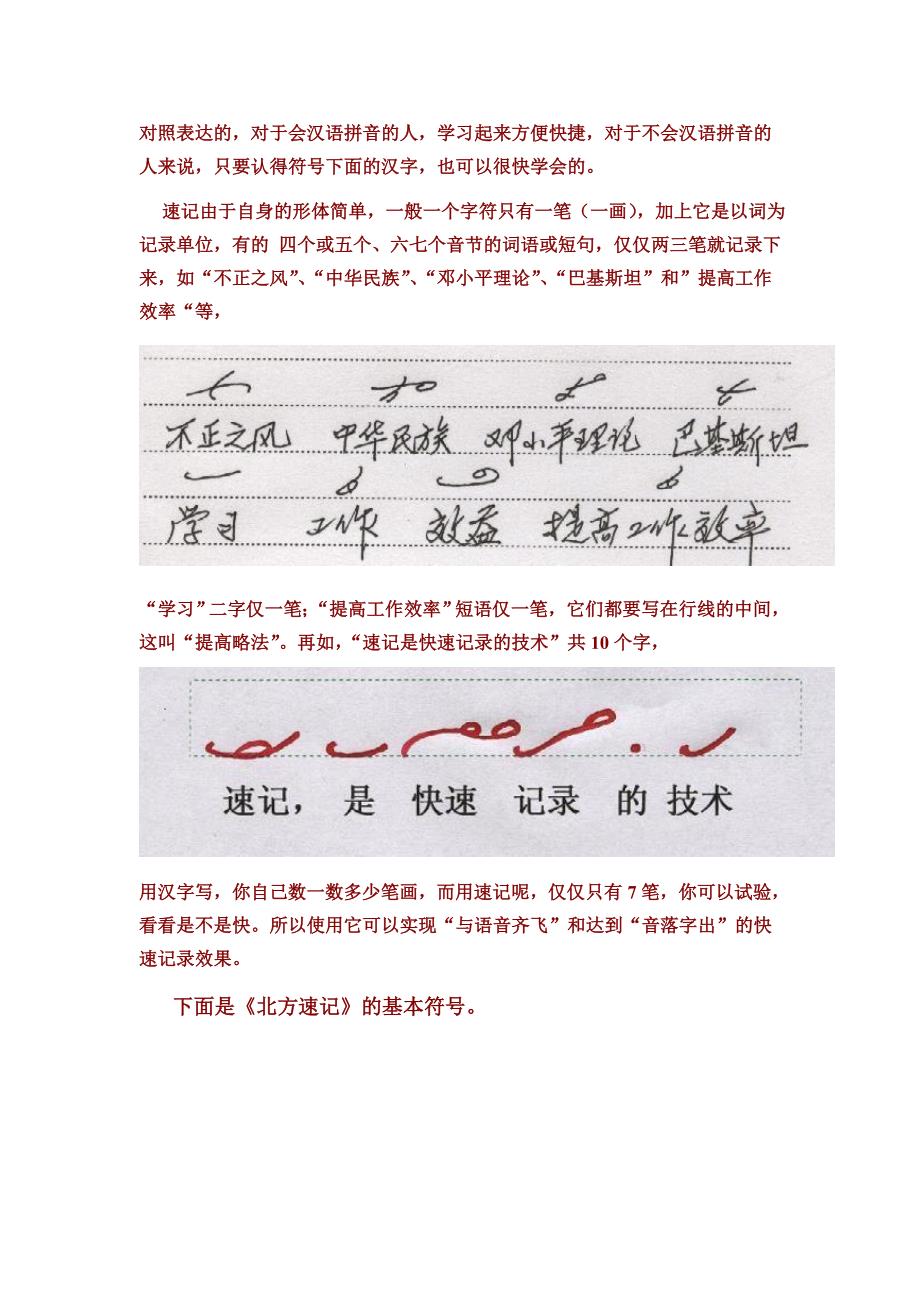 对照表达的，对于会汉语拼音的人，学习起来方便快捷，对于不会汉语拼音的
人来说，只要认得符号下面的汉字，也可以很快学会的。
速记由于自身的形体简单，一般一个字符只有一笔（一画），加上它是以词为
记录单位，有的 四个或五个、六七个音节的词语或短句，仅仅两三笔就记录下
来，如“不正之风”、“中华民族”、“邓小平理论”、“巴基斯坦”和”提高工作
效率“等，
不正之风 中华民族 邓小平理论 巴基斯坦
学习 工作 效益 提高工作效率
“学习”二字仅一笔；“提高工作效率”短语仅一笔，它们都要写在行线的中间，
这叫“提高略法”。再如，“速记是快速记录的技术”共 10 个字，
速记， 是 快速 记录 的 技术
用汉字写，你自己数一数多少笔画，而用速记呢，仅仅只有 7 笔，你可以试验，
看看是不是快。所以使用它可以实现“与语音齐飞”和达到“音落字出”的快
速记录效果。
下面是《北方速记》的基本符号。